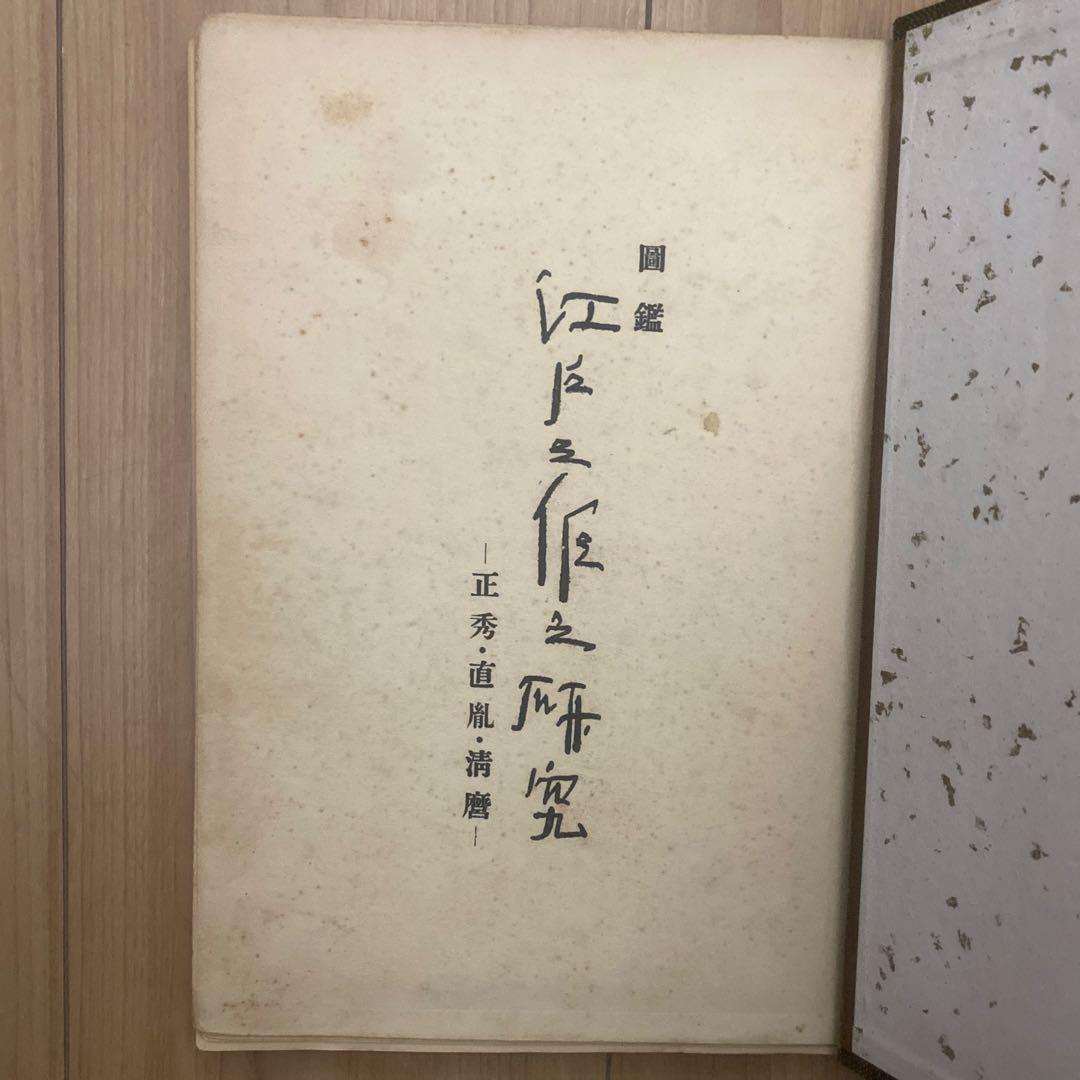 圖鑑
江戸三作之研究
—正秀・直胤・清麿—